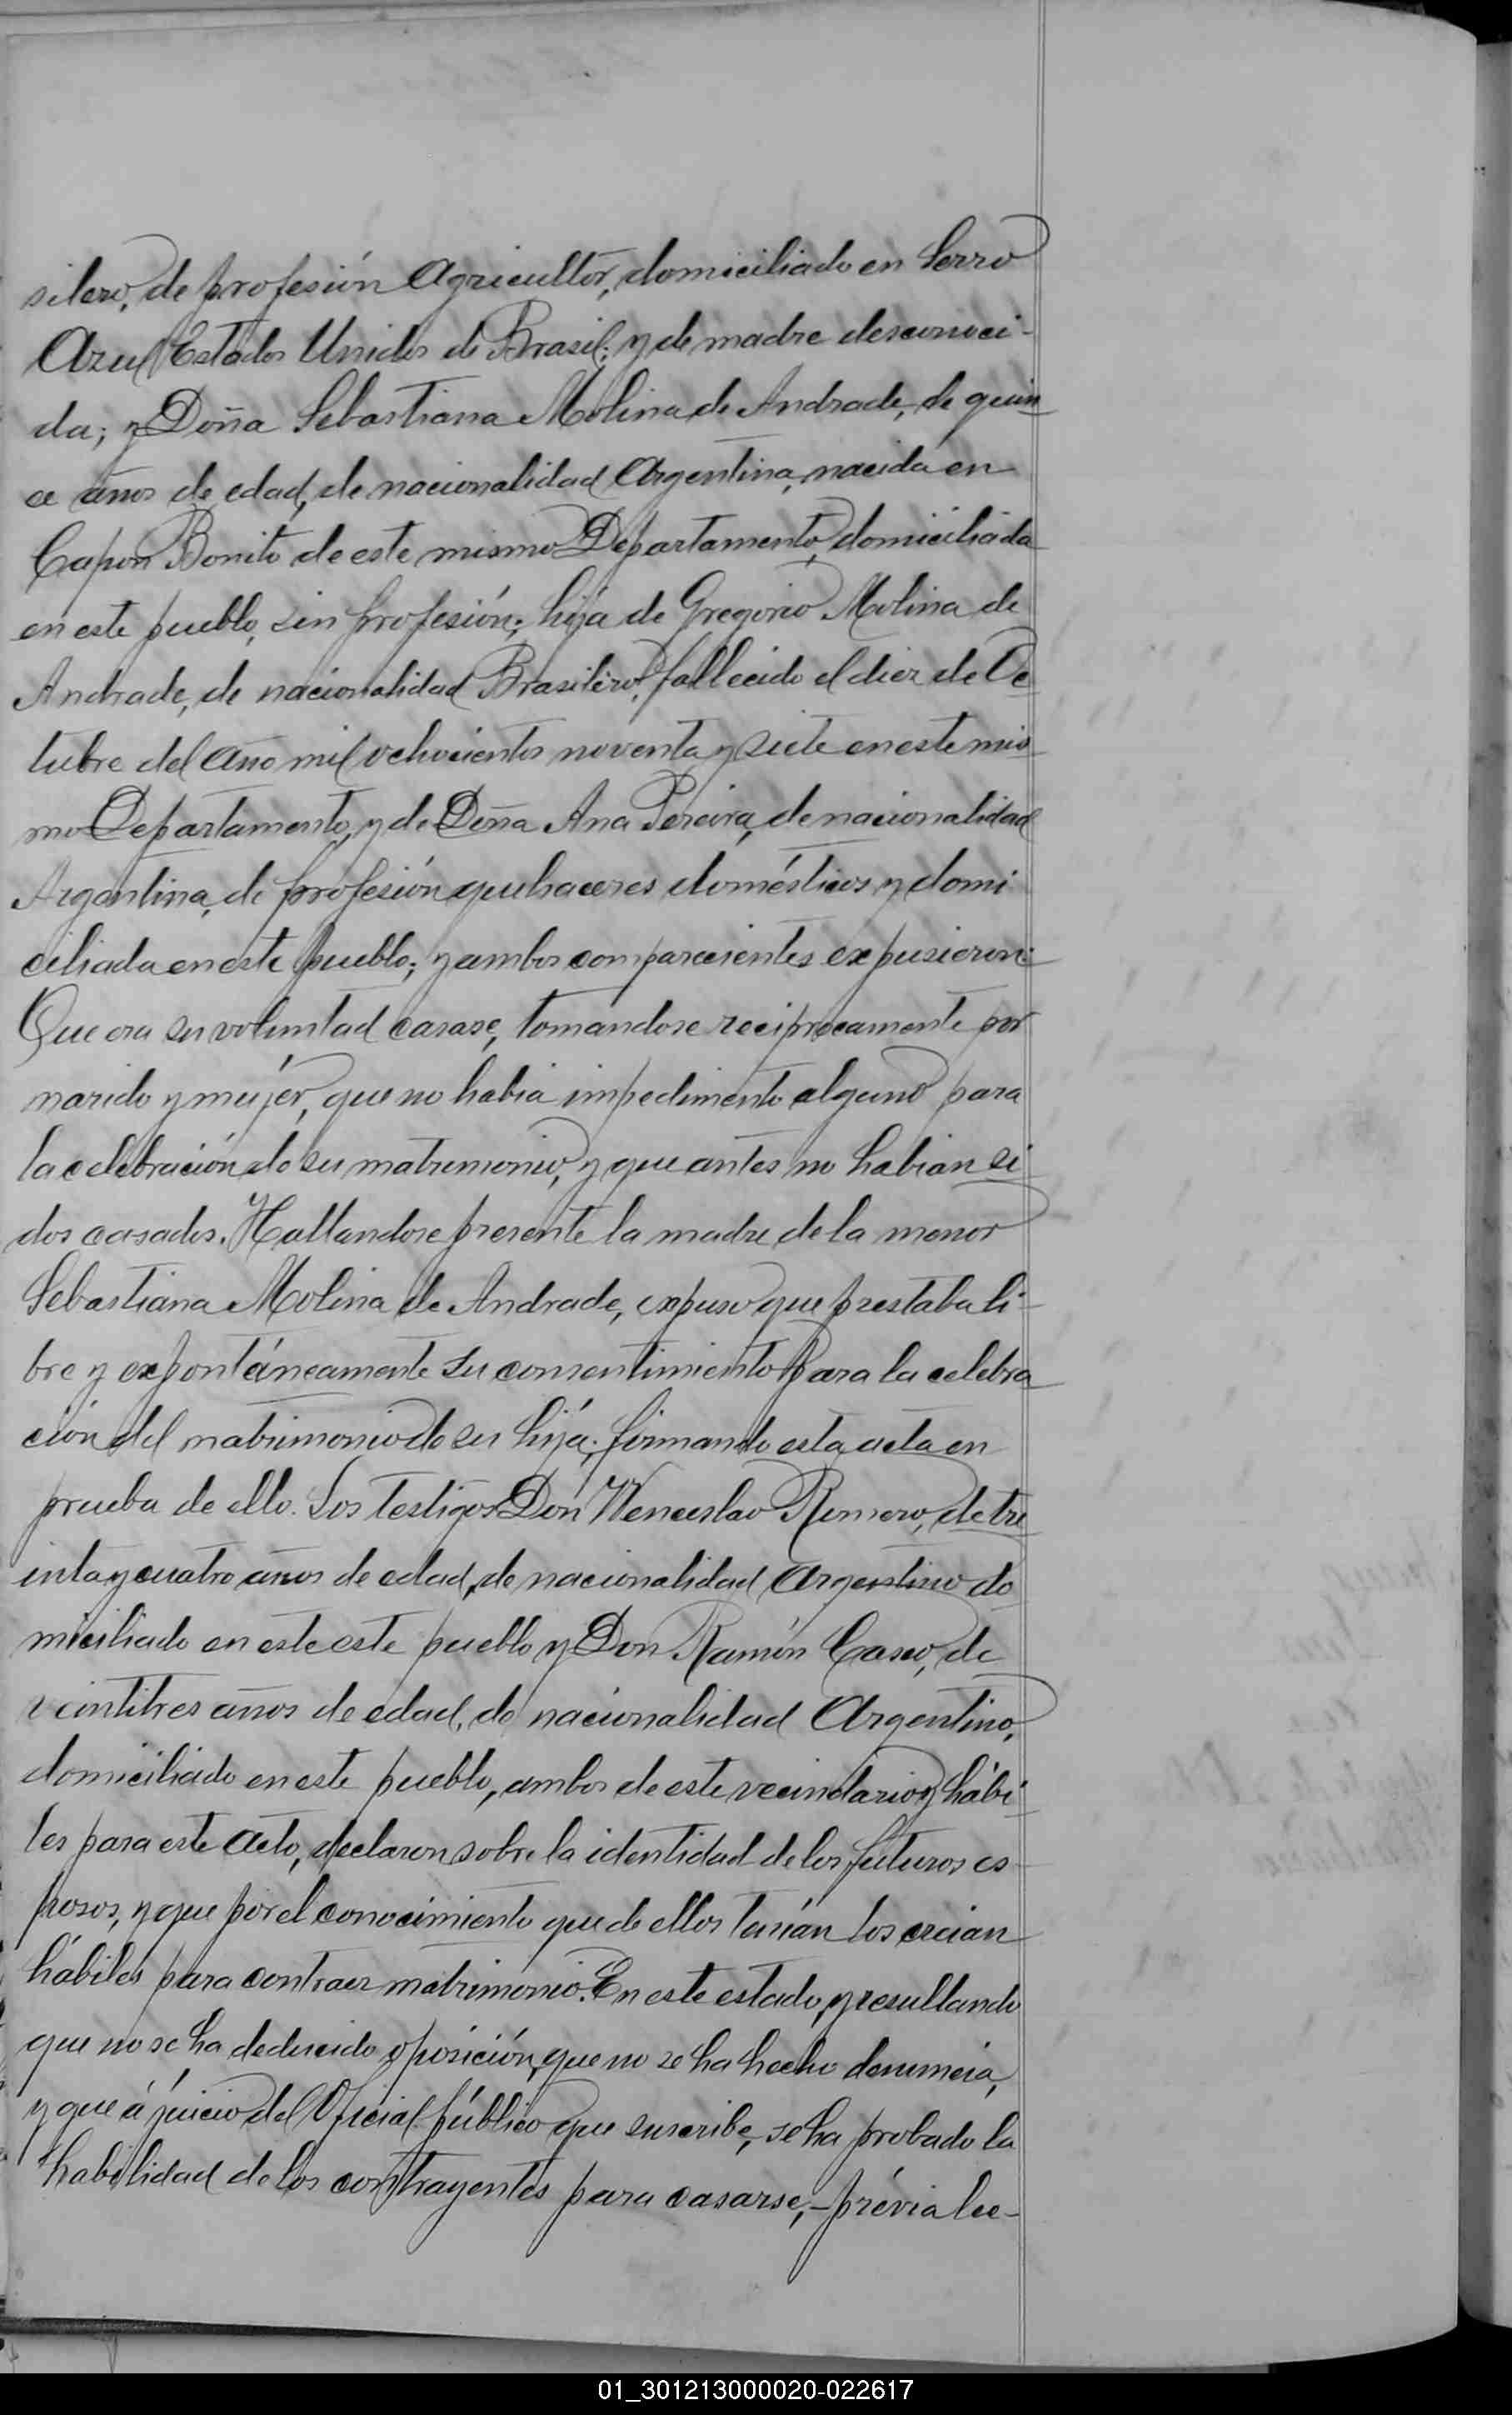 silero, de profesión Agricultor, domiciliado en Serro
Azul Estados Unidos de Brasil; y de madre desconoci-
da; y Doña Sebastiana Molina de Andrade, de quin
ce años de edad, de nacionalidad Argentina, nacida en
Capon Bonito de este mismo Departamento, domiciliada
en este pueblo, sin profesión; hija de Gregorio Molina de
Andrade, de nacionalidad Brasilero, fallecido el diez de Oc
tubre del Año mil ochocientos noventa y siete en este mis
mo Departamento, y de Doña Ana Pereira, de nacionalidad
Argentina, de profesión quehaceres domésticos y domi
ciliada en este pueblo; y ambos comparecientes expusieron:
Que era su voluntad casase, tomandose reciprocamente por
marido y mujer, que no habia impedimento alguno para
la celebración de su matrimonio, y que antes no habian si
dos casados. Hallandose presente la madre de la menor
Sebastiana Molina de Andrade, expuso que prestaba li-
bre y expontáneamente su consentimiento para la celebra
ción del matrimonio de su hija; firmando esta acta en
prueba de ello. Los testigos Don Wenceslao Romero, de tre
inta y cuatro años de edad, de nacionalidad Argentino do
miciliado en este este pueblo y Don Ramón Casco, de
veintitres años de edad, de nacionalidad Argentino,
domiciliado en este pueblo, ambos de este vecindario y hábi
les para este acto, declaron sobre la identidad de los futuros es
posos, y que por el conocimiento que de ellos tenían los creian
hábiles para contraer matrimonio. En este estado, y resultando
que no se ha deducido oposición, que no se ha hecho denuncia,
y que á juicio del Oficial público que suscribe, se ha probado la
habilidad de los contrayentes para casarse,- prévia lec-
01_301213000020-022617